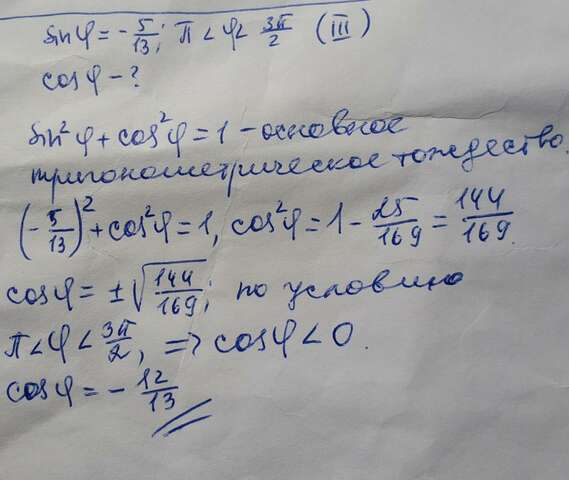 sinφ = -5/13; π < φ < 3π/2 (III)
cosφ - ?
sin²φ + cos²φ = 1 - основное
тригонометрическое тождество.
(-5/13)² + cos²φ = 1, cos²φ = 1 - 25/169 = 144/169.
cosφ = ±√144/169; по условию
π < φ < 3π/2, => cosφ < 0.
cosφ = -12/13